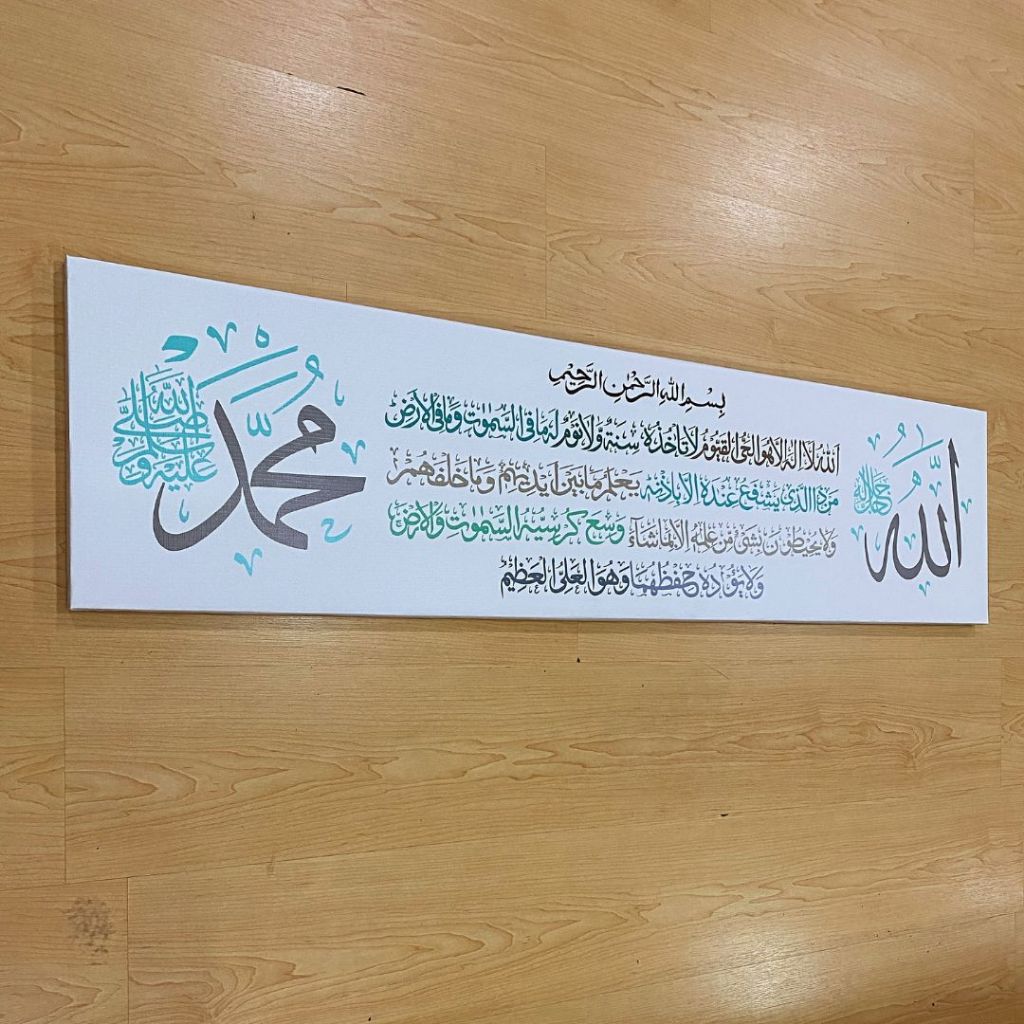 الله
جل جلاله
بِسْمِ اللهِ الرَّحْمٰنِ الرَّحِيْمِ
اَللهُ لَا اِلٰهَ اِلَّا هُوَ الْحَىُّ الْقَيُّوْمُ لَا تَاْخُذُهٗ سِنَةٌ وَّلَا نَوْمٌ لَهٗ مَا فِى السَّمٰوٰتِ وَمَا فِى الْاَرْضِ
مَنْ ذَا الَّذِىْ يَشْفَعُ عِنْدَهٗ اِلَّا بِاِذْنِهٖ يَعْلَمُ مَا بَيْنَ اَيْدِيْهِمْ وَمَا خَلْفَهُمْ
وَلَا يُحِيْطُوْنَ بِشَىْءٍ مِّنْ عِلْمِهٖ اِلَّا بِمَا شَآءَ وَسِعَ كُرْسِيُّهُ السَّمٰوٰتِ وَالْاَرْضَ
وَلَا يَـُٔوْدُهٗ حِفْظُهُمَا وَهُوَ الْعَلِىُّ الْعَظِيْمُ
محمد
صلى الله عليه وسلم